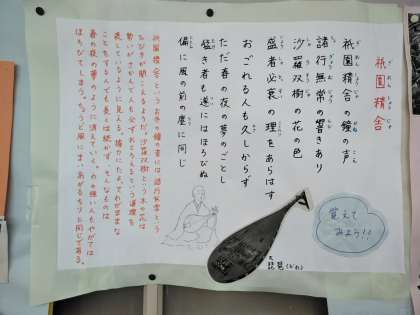 祇園精舎
祇園精舎の鐘の声
諸行無常の響きあり
沙羅双樹の花の色
盛者必衰の理をあらはす
おごれる人も久しからず
ただ春の夜の夢のごとし
猛き者も遂にはほろびぬ
偏に風の前の塵に同じ
祇園精舎というお寺の鐘の音には諸行無常という
ひびきが聞こえるようだ。沙羅双樹という木の花は
勢いがさかんな人も必ずおとろえるという道理を
表しているように見える。権力にたよってわがままな
ことをする人でも長くは続かず、そんなものは
春の夜の夢のように消えていく。力の強い人もやがては
ほろびてしまう。ちょうど風にまいあがるちりと同じである。
覚えて
みよう!!
琵琶(びわ)